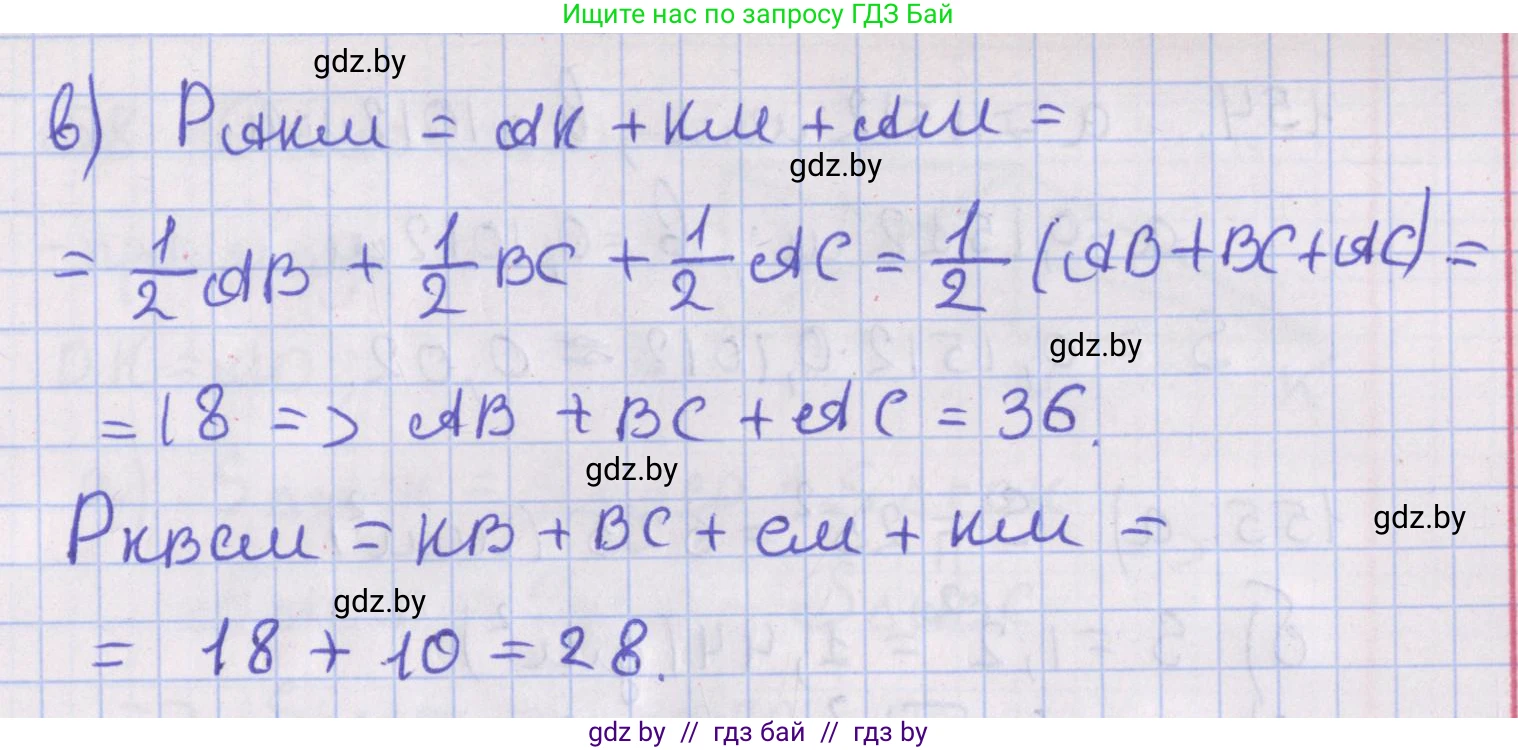 Ищите нас по запросу ГДЗ Бай
gdz.by
в) PAKM = AK + KM + AM =
gdz.by
= 1/2 AB + 1/2 BC + 1/2 AC = 1/2 (AB + BC + AC) =
gdz.by
= 18 => AB + BC + AC = 36.
gdz.by
gdz.by
PKBCM = KB + BC + CM + KM =
gdz.by
= 18 + 10 = 28.
gdz.by // гдз бай // гдз by